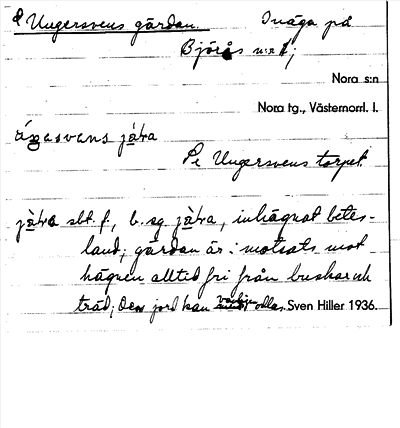 Ungersvens gärdan. Inäga på
Björås n:r 1;
Nora s:n
Nora tg., Västernorrl. l.
jȧ̀ra
Se Ungersvens torpet
sbt. f., b. sg. inhägnat betes-
land; gärdan är i motsats mot
hägnen alltid fri från buskar och
träd; den jord kan odlas. Sven Hiller 1936.